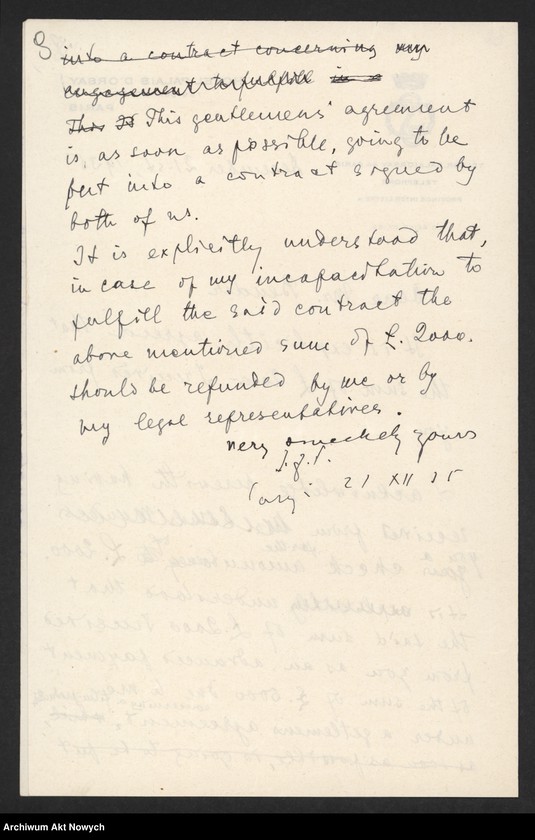 3
into a contract concerning my
engagement to fulfill in a
This It This gentlemens' agreement
is as soon as possible, going to be
put into a contract signed by
both of us.
It is explicitly understood that,
in case of my incapacitation to
fulfill the said contract the
above mentioned sum of £. 2000.
should be refunded by me or by
my legal representatives.
very sincerely yours
I.J.P.
21 XII 35
Archiwum Akt Nowych